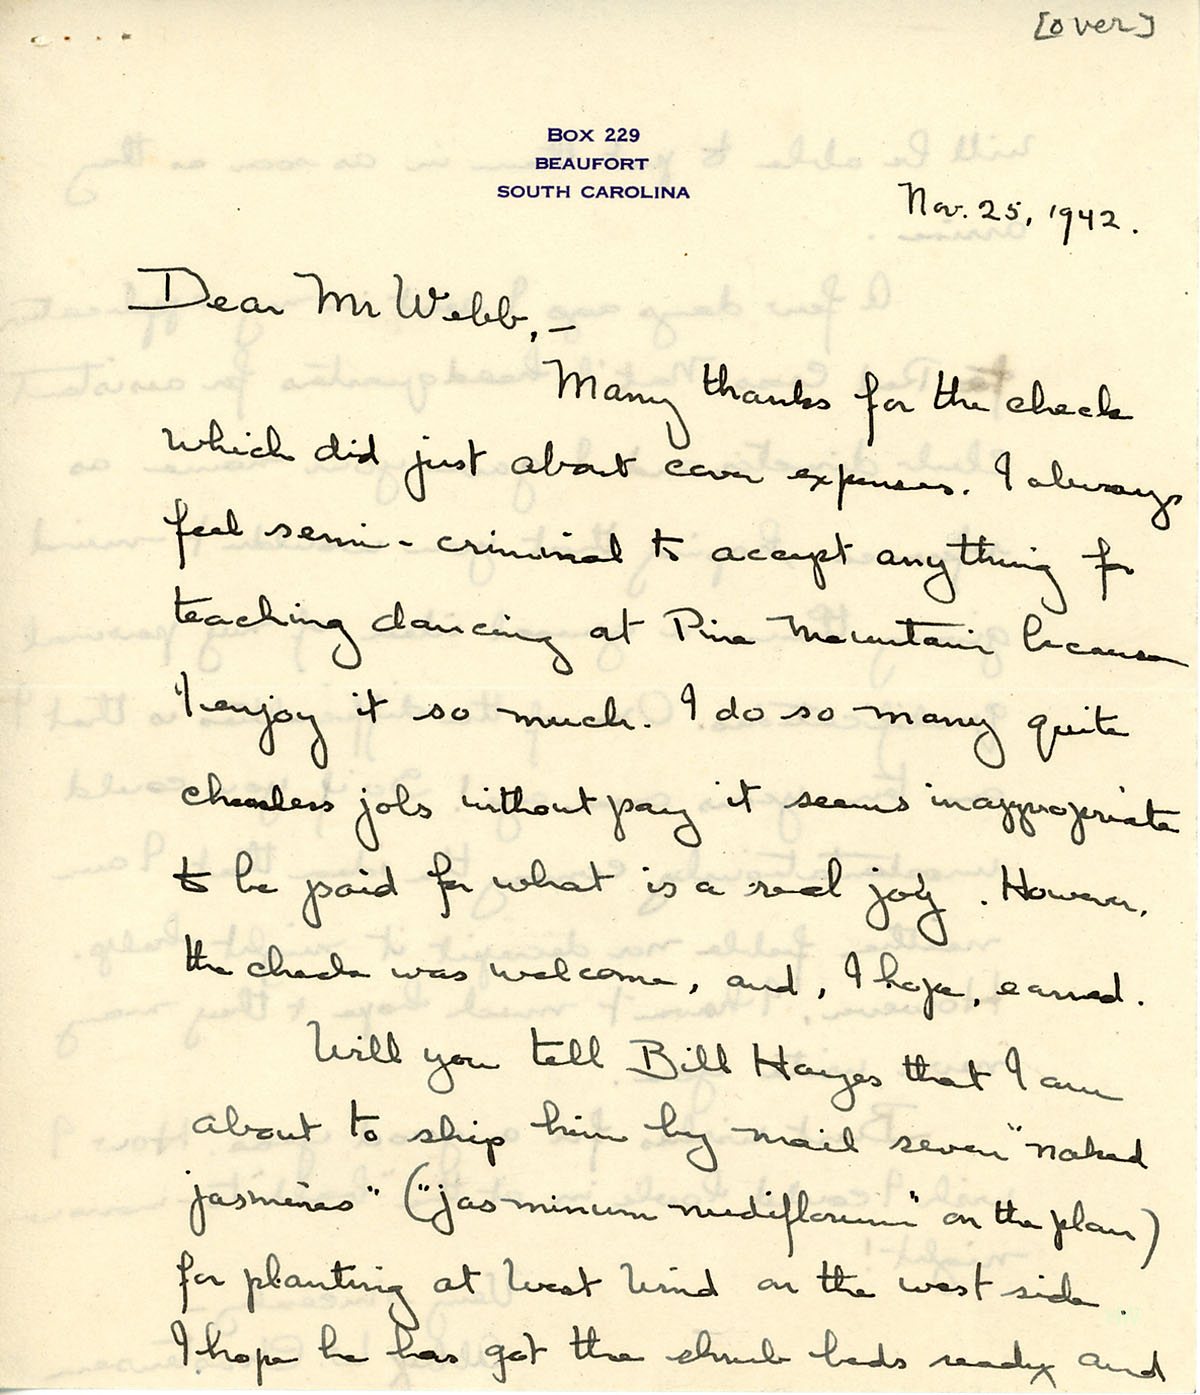 [over]
BOX 229
BEAUFORT
SOUTH CAROLINA
Nov. 25, 1942.
Dear Mr Webb, —
Many thanks for the check
which did just about cover expenses. I always
feel semi-criminal to accept anything for
teaching dancing at Pine Mountain because
I enjoy it so much. I do so many quite
cheerless jobs without pay it seems inappropriate
to be paid for what is a real joy. However,
the check was welcome, and, I hope, earned.
Will you tell Bill Hayes that I am
about to ship him by mail seven "naked
jasmines" ("jasminum nudiflorum" on the plan)
for planting at West Wind on the west side.
I hope he has got the shrub beds ready and